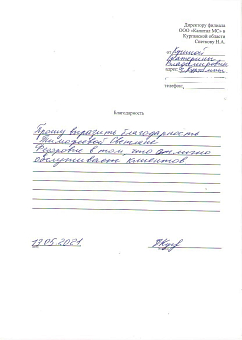 Директору филиала
ООО «Капитал МС» в
Курганской области
Снеткову Н.А.
от
Екатерины
Владимировны
адрес г. Курган
телефон:
Благодарность
Прошу выразить благодарность
Тимофеевой Светлане
в том, что отлично
обслуживает клиентов
13.05.2021